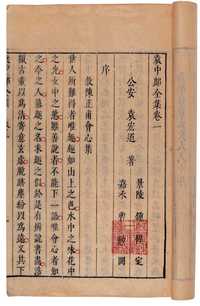 袁中郎全集卷一
公安 袁宏道 著
景陵 鍾惺 定
嘉禾 曹勳 閱
序
敘陳正甫會心集
世人所難得者唯趣趣如山上之色水中之味花中
之光女中之態雖善說者不能下一語唯會心者知
之今之人慕趣之名求趣之似於是有辨說書畫涉
獵古董以為清寄意玄虛脫跡塵紛以為遠又其下